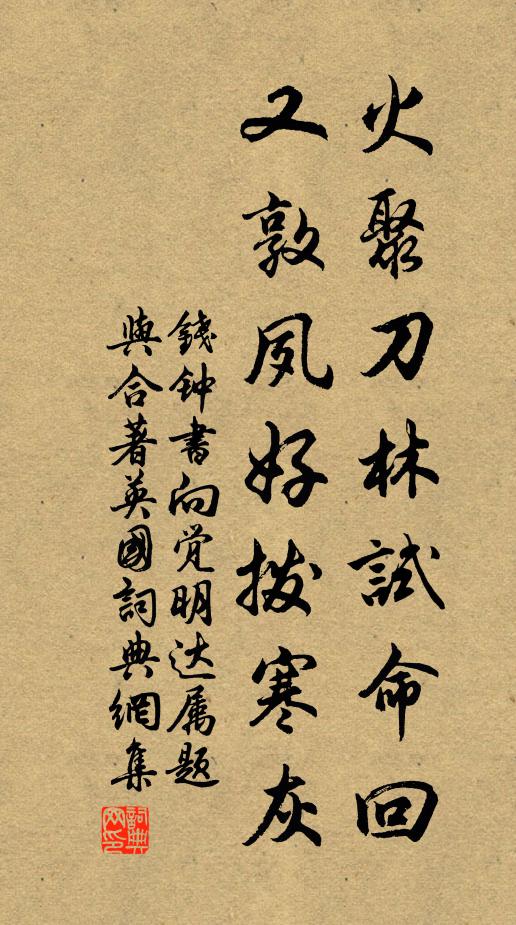 火聚刀林試命回
又敦夙好拨寒灰
錢钟書向觉明达属题
與合著英國詞典網集
詞典網印